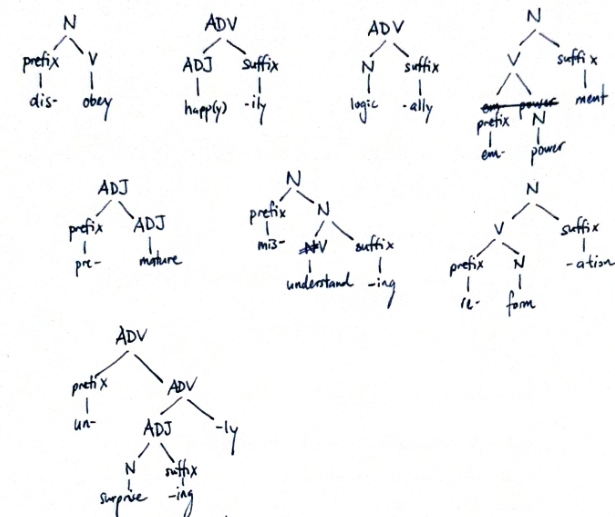 N
prefix V
dis- obey
ADV
ADJ suffix
happ(y) -ily
ADV
N suffix
logic -ally
N
V suffix
em- power ment
prefix N
em- power
ADJ
prefix ADJ
pre- mature
N
prefix N
mis- V suffix
understand -ing
N
V suffix
prefix N -ation
re- form
ADV
prefix ADV
un- ADJ -ly
N suffix
surprise -ing